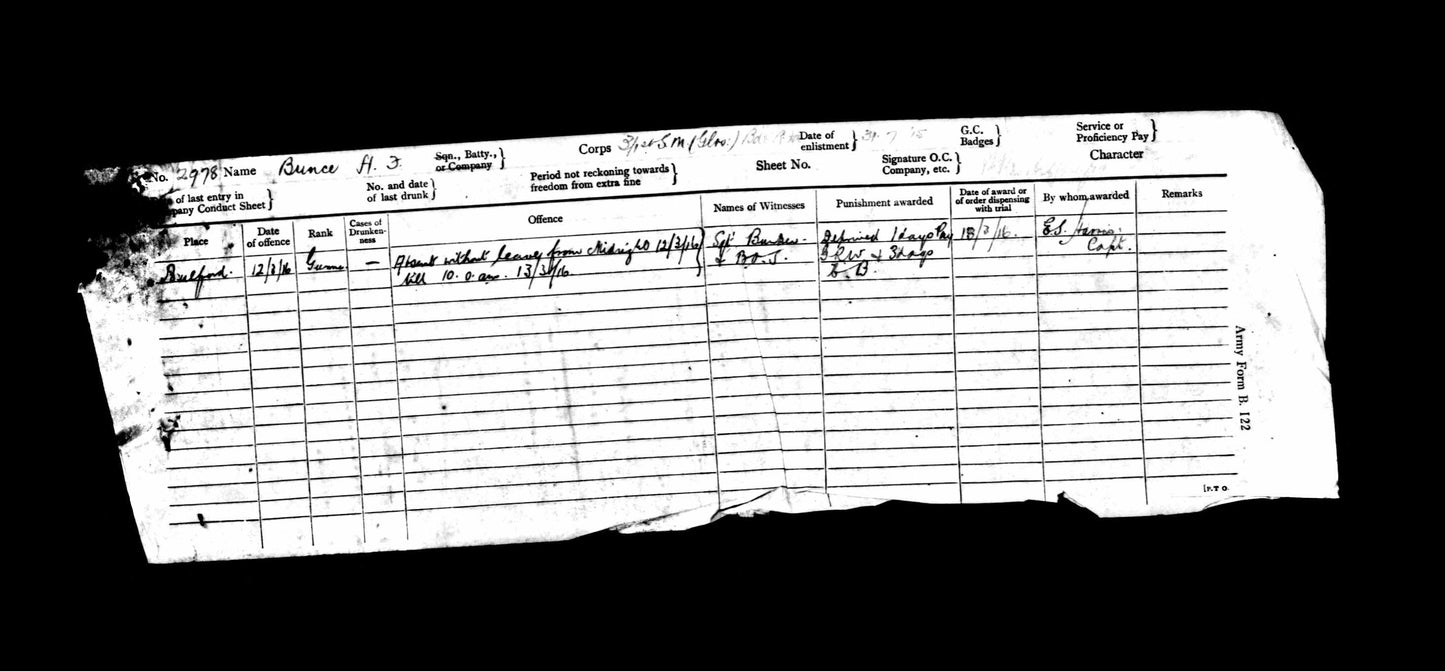 No. 2978 Name Bunce H. J. Sqn., Batty., or Company } Corps 3/1st S.M. (Glos:) Date of enlistment } 31.7.15 G.C. Badges } Service or Proficiency Pay }
of last entry in Conduct Sheet } No. and date of last drunk } Period not reckoning towards freedom from extra fine } Sheet No. Signature O.C. Company, etc. } Character
Place Date of offence Rank Cases of Drunkenness Offence Names of Witnesses Punishment awarded Date of award or of order dispensing with trial By whom awarded Remarks
Bulford. 12/3/16 Gunner — Absent without leave from Midnight 12/3/16 Sgt Deprived 1 days Pay 13/3/16. E.S. Harris.
till 10.0 am. 13/3/16 & R.W. & 3 days Capt.
C.B.
Army Form B. 122
[P.T O.